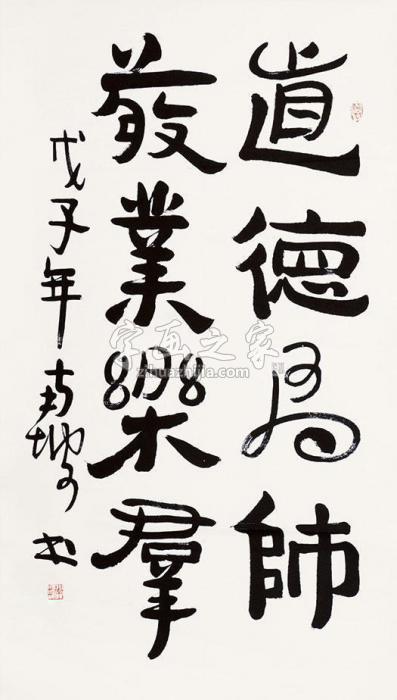 道德為師
敬業樂群
戊子年
书
字画之家
zihuazhijia.com